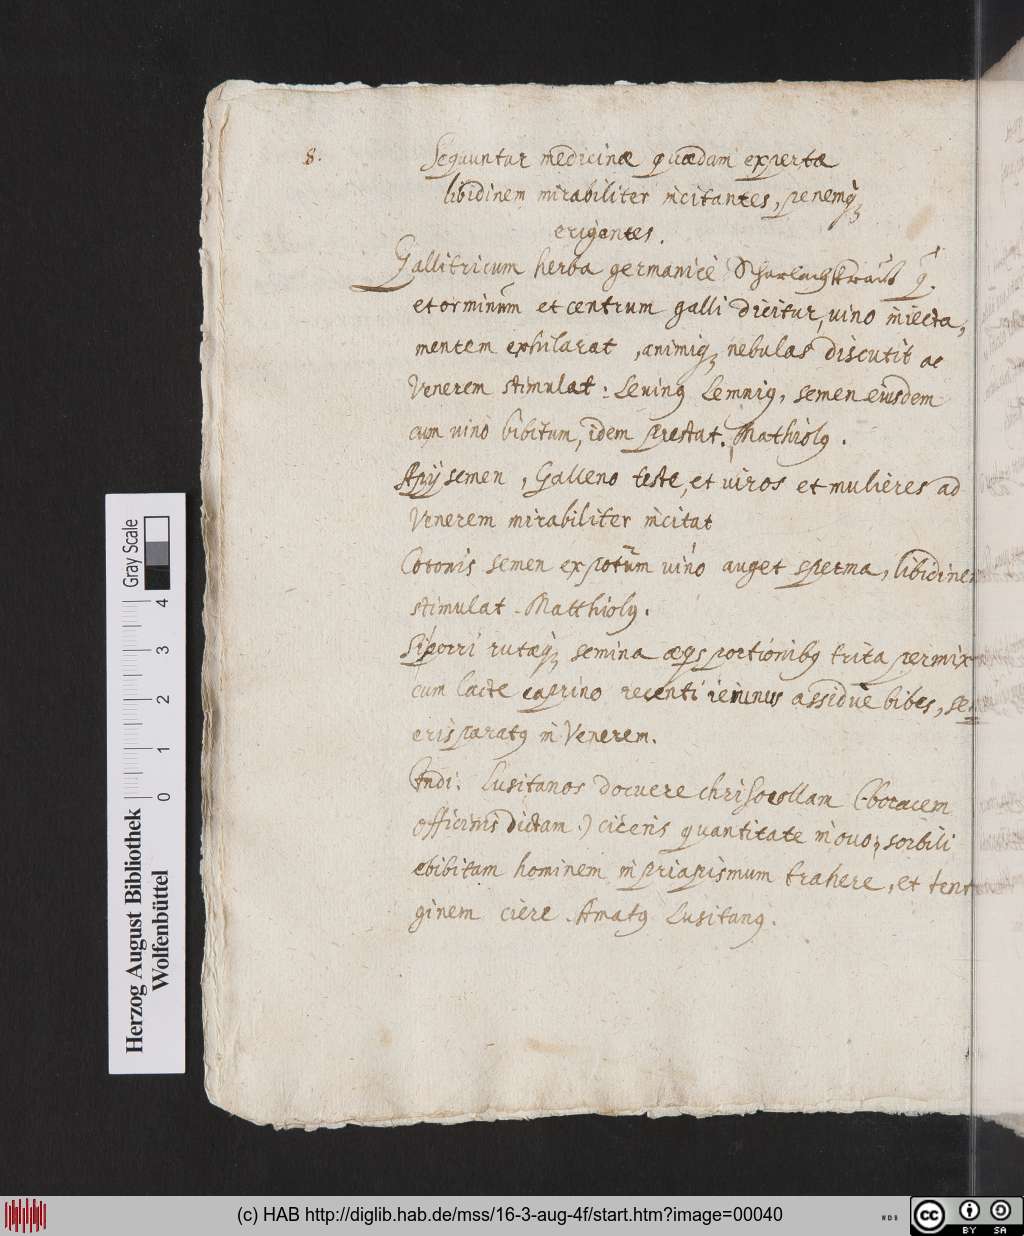 8.
Sequuntur medicinæ quædam expertæ
libidinem mirabiliter incitantes, penemq;
erigentes.
Gallitricum herba germanicè Scharlachkraut q.
et orminum et centrum galli dicitur, uino iniecta,
mentem exhilarat, animiq; nebulas discutit ac
Venerem stimulat: Leuinꝰ Lemniꝰ, semen eiusdem
cum uino bibitum, idem prestat. Mathiolꝰ.
Apij semen, Galleno teste, et uiros et mulieres ad
Venerem mirabiliter incitat
Cotonis semen expotum uino auget sperma, libidine
stimulat. Matthiolꝰ.
Si porri rutæq; semina æqs portionibꝰ trita permix
cum lacte caprino recenti ieiunus assidue bibes,
eris paratꝰ in Venerem.
Indi Lusitanos docuere chrisocollam (boracem
officinis dictam.) ciceris quantitate in ouo sorbili
ebibitam hominem in priapismum trahere, et tent
ginem ciere. Amatꝰ Lusitanꝰ.
Herzog August Bibliothek
Wolfenbüttel
0 1 2 3 4
Gray Scale
(c) HAB http://diglib.hab.de/mss/16-3-aug-4f/start.htm?image=00040
WDB
cc BY SA